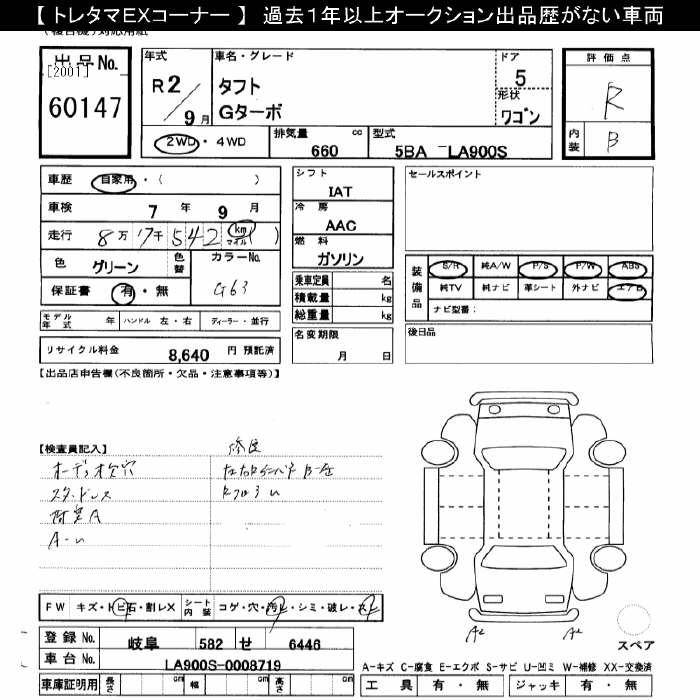 【 トレタマEXコーナー 】 過去1年以上オークション出品歴がない車両
出品No.
[2001]
60147
年式
R2
9月
車名・グレード
タフト
Gターボ
ドア
5
形状
ワゴン
評価点
R
内装
B
2WD・4WD
排気量 cc
660
型式
5BA -LA900S
車歴 自家用・( )
車検 7年 9月
走行 8万7千542 km マイル( )
色 グリーン 色替 カラーNo. G63
保証書 有・無
モデル年式 年 ハンドル 左・右 ディーラー・並行
リサイクル料金 8,640 円 預託済
シフト
IAT
冷房
AAC
燃料
ガソリン
乗車定員 名
積載量 kg
総重量 kg
名変期限
月 日
セールスポイント
装備品
S/R 純A/W P/S P/W ABS
純TV 純ナビ 革シート 外ナビ エアB
ナビ型番:
後日品
【出品店申告欄(不良箇所・欠品・注意事項等)】
【検査員記入】
修歴
スタッドレス
A-U
FW キズ・トビ石・割レX シート内装 コゲ・穴・汚レ・シミ・破レ・スレ
登録No. 岐阜 582 せ 6446
車台No. LA900S-0008719
車庫証明用 長さ cm 幅 cm 高さ cm
A2 A2
スペア
A-キズ C-腐食 E-エクボ S-サビ U-凹ミ W-補修 XX-交換済
工具 有・無 ジャッキ 有・無